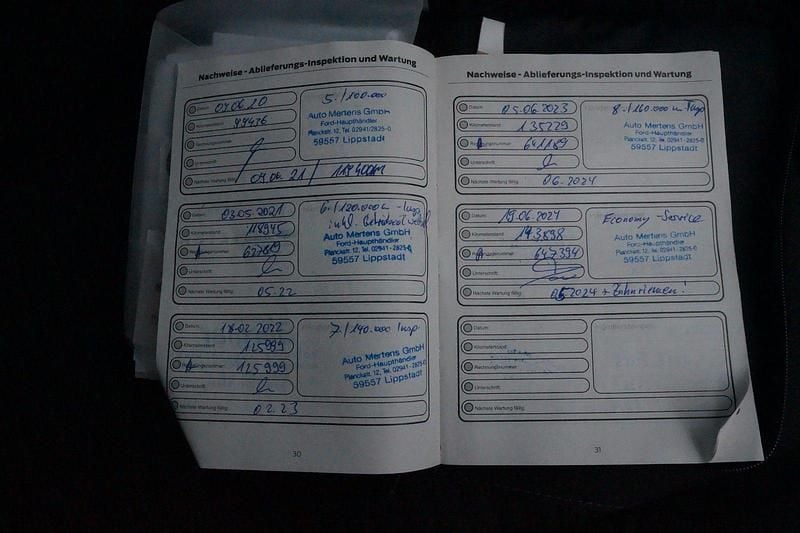 Nachweise - Ablieferungs-Inspektion und Wartung
Datum: 04.06.20
5./100.000
Kilometerstand:
Auto Mertens GmbH
Ford-Haupthändler
Planckstr. 12, Tel. 02941/2825-0
59557 Lippstadt
Unterschrift:
Nächste Wartung fällig: 04.06.21 /
Datum: 03.05.2021
6./120.000
Kilometerstand: 118945
Auto Mertens GmbH
Ford-Haupthändler
Planckstr. 12, Tel. 02941 - 2825-0
59557 Lippstadt
Rechnungsnummer:
Unterschrift:
Nächste Wartung fällig: 05.22
Datum: 18.02.2022
7./140.000 Insp.
Kilometerstand: 125999
Auto Mertens GmbH
Ford-Haupthändler
Planckstr. 12, Tel. 02941 - 2825-0
59557 Lippstadt
Rechnungsnummer: 125999
Unterschrift:
Nächste Wartung fällig: 02.23
30
Nachweise - Ablieferungs-Inspektion und Wartung
Datum: 05.06.2023
8./160.000
Kilometerstand: 135229
Auto Mertens GmbH
Ford-Haupthändler
Planckstr. 12, Tel. 02941 - 2825-0
59557 Lippstadt
Rechnungsnummer: 641189
Unterschrift:
Nächste Wartung fällig: 06.2024
Datum: 19.06.2024
Economy-Service
Kilometerstand: 143898
Auto Mertens GmbH
Ford-Haupthändler
Planckstr. 12, Tel. 02941 - 2825-0
59557 Lippstadt
Rechnungsnummer: 647394
Unterschrift:
Nächste Wartung fällig: + Zahnriemen!
Datum:
Kilometerstand:
Rechnungsnummer:
Unterschrift:
Nächste Wartung fällig:
31